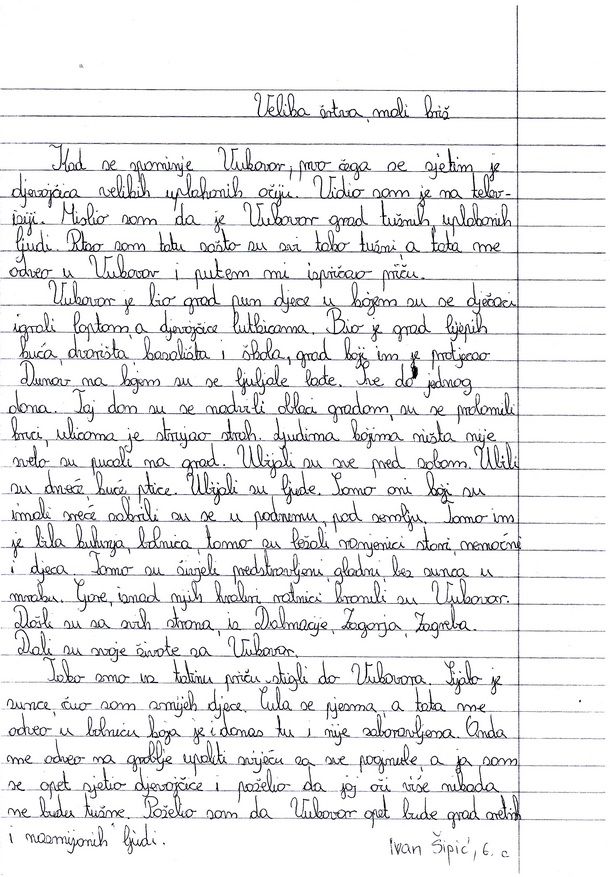 Velika žrtva, mali križ
Kad se spominje Vukovar, prvo čega se sjetim je
djevojčica velikih uplakanih očiju. Vidio sam je na telev-
iziji. Mislio sam da je Vukovar grad tužnih, uplakanih
ljudi. Pitao sam tatu zašto su svi tako tužni, a tata me
odveo u Vukovar i putem mi ispričao priču.
Vukovar je bio grad pun djece u kojem su se dječaci
igrali loptom, a djevojčice lutkicama. Bio je grad lijepih
kuća, dvorišta, kazališta i škola, grad koji im je protjecao
Dunav na kojem su se ljuljale lađe. Sve do jednog
dana. Taj dan su se nadvili oblaci gradom, su se prolomili
krici, ulicama je strujao strah. Ljudima kojima ništa nije
sveto su pucali na grad. Ubijali su sve pred sobom. Ubili
su drveće, kuće, ptice. Ubijali su ljude. Samo oni koji su
imali sreće sakrili su se u podrumu, pod zemlju. Tamo im
je bila kuhinja, bolnica, tamo su ležali ranjenici, stari, nemoćni
i djeca. Tamo su živjeli predstravljeni, gladni, bez sunca u
mraku. Gore, iznad njih hrabri ratnici branili su Vukovar.
Došli su sa svih strana, iz Dalmacije, Zagorja, Zagreba.
Dali su svoje živote za Vukovar.
Tako smo uz tatinu priču stigli do Vukovara. Sjalo je
sunce, čuo sam smijeh djece. Čula se pjesma, a tata me
odveo u bolnicu koja je i danas tu i nije zaboravljena. Onda
me odveo na groblje upaliti svijeću za sve poginule, a ja sam
se opet sjetio djevojčice i poželio da joj oči više nikada
ne budu tužne. Poželio sam da Vukovar opet bude grad sretnih
i nasmijanih ljudi.
Ivan Šipić, 6. c